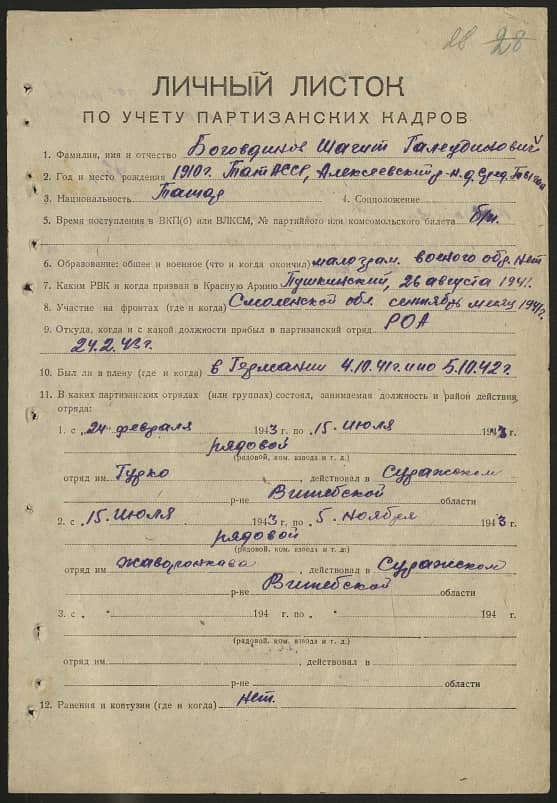 28 28
ЛИЧНЫЙ ЛИСТОК
ПО УЧЕТУ ПАРТИЗАНСКИХ КАДРОВ
1. Фамилия, имя и отчество Боговдинов Шагит Галеудинович
2. Год и место рождения 1910г. ТатАССР, Алексеевский р-н. д. Сред.
3. Национальность Татар 4. Соцположение
5. Время поступления в ВКП(б) или ВЛКСМ, № партийного или комсомольского билета б/п.
6. Образование: общее и военное (что и когда окончил) малограм. военого обр. нет
7. Каким РВК и когда призван в Красную Армию Пушкинский, 26 августа 1941.
8. Участие на фронтах (где и когда) Смоленской обл. сентябрь месяц 1941г.
9. Откуда, когда и с какой должности прибыл в партизанский отряд РОА
24.2.43г.
10. Был ли в плену (где и когда) в Германии 4.10.41г. по 5.10.42г.
11. В каких партизанских отрядах (или группах) состоял, занимаемая должность и район действия
отряда:
1. с 24 февраля 1943 г. по 15 июля 1943 г.
рядовой
(рядовой, ком. взвода и т. д.)
отряд им. Гудко, действовал в Суражском
р-не Витебской области
2. с 15 июля 1943 г. по 5 ноября 1943 г.
рядовой
(рядовой, ком. взвода и т. д.)
отряд им. Жаворонкова, действовал в Суражском
р-не Витебской области
3. с " 194 г. по " 194 г.
(рядовой, ком. взвода и т. д.)
отряд им., действовал в
р-не области
12. Ранения и контузии (где и когда) нет.